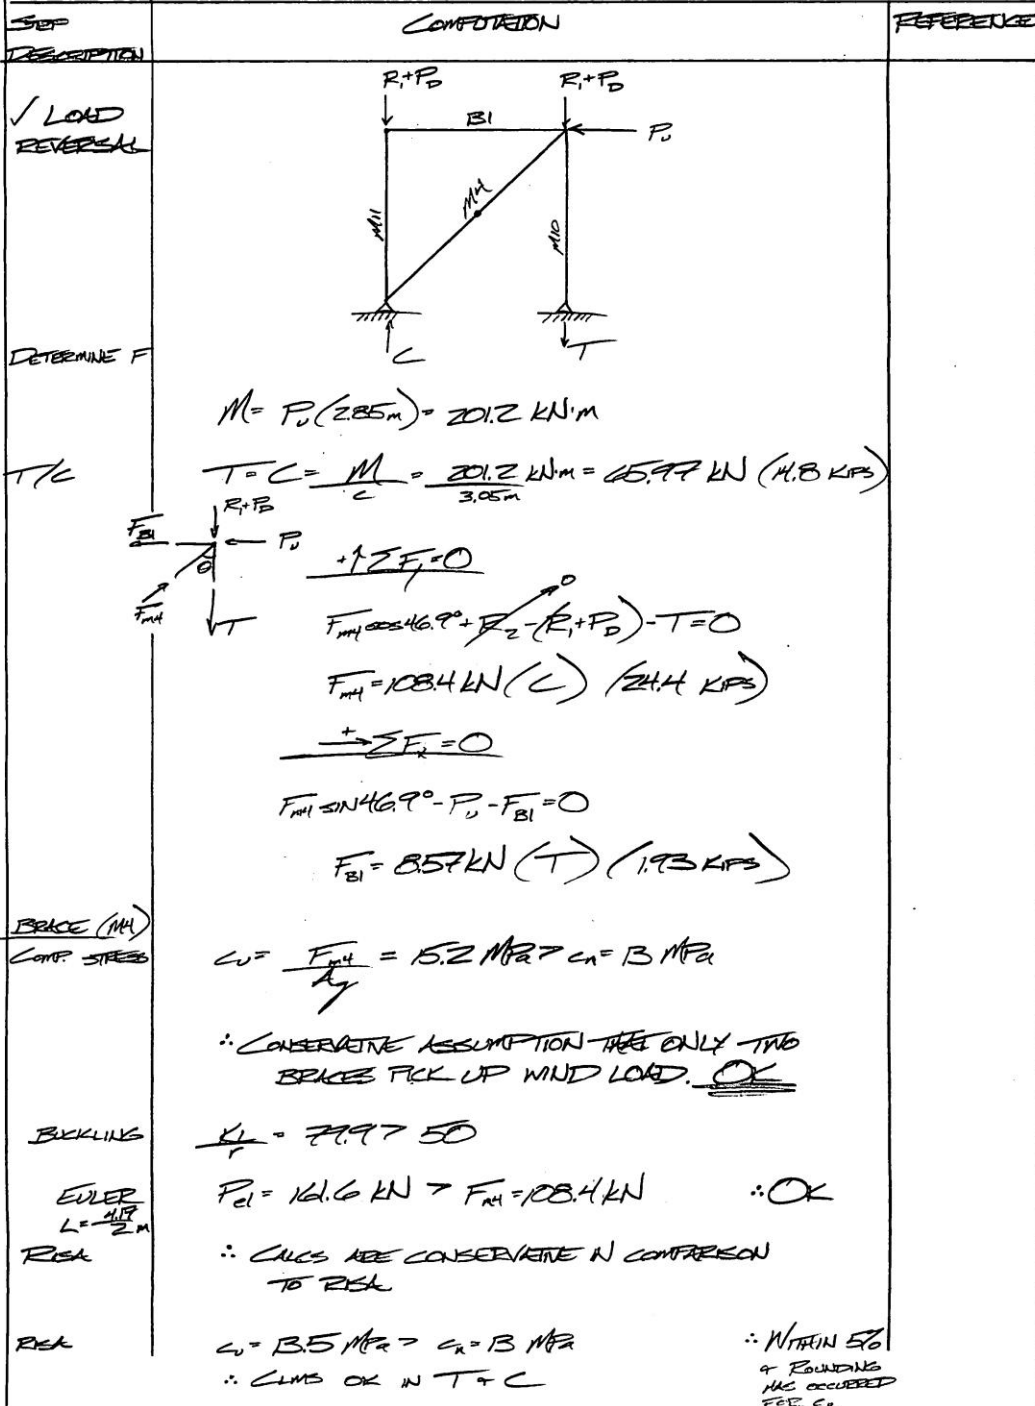 STEP DESCRIPTION COMPUTATION REFERENCE
R₁+P_D R₁+P_D
✓ LOAD B1
REVERSAL P_u
M4
M11 M10
C T
DETERMINE F
M = P_u(2.85m) = 201.2 kN·m
T/C T = C = M/c = 201.2 kN·m/3.05m = 65.97 kN (14.8 KIPS)
R₁+P_D
F_B1 P_u
θ +↑ΣF_y=0
F_M4 T
F_M4 cos46.9° + R₂ - (R₁+P_D) - T = 0
0
F_M4 = 108.4 kN (C) (24.4 KIPS)
+→ ΣF_x = 0
F_M4 SIN46.9° - P_u - F_B1 = 0
F_B1 = 8.57 kN (T) (1.93 KIPS)
BRACE (M4)
COMP. STRESS c_u = F_M4/A_g = 15.2 MPa > c_n = 13 MPa
∴ CONSERVATIVE ASSUMPTION THAT ONLY TWO
BRACES PICK UP WIND LOAD. OK
BUCKLING KL/r = 79.9 > 50
EULER P_el = 161.6 kN > F_M4 = 108.4 kN ∴ OK
L = 4.19/2 m
RISA ∴ CALCS ARE CONSERVATIVE IN COMPARISON
TO RISA
RISA c_u = 13.5 MPa > c_n = 13 MPa ∴ WITHIN 5%
∴ CLMS OK IN T + C + ROUNDING
HAS OCCURRED